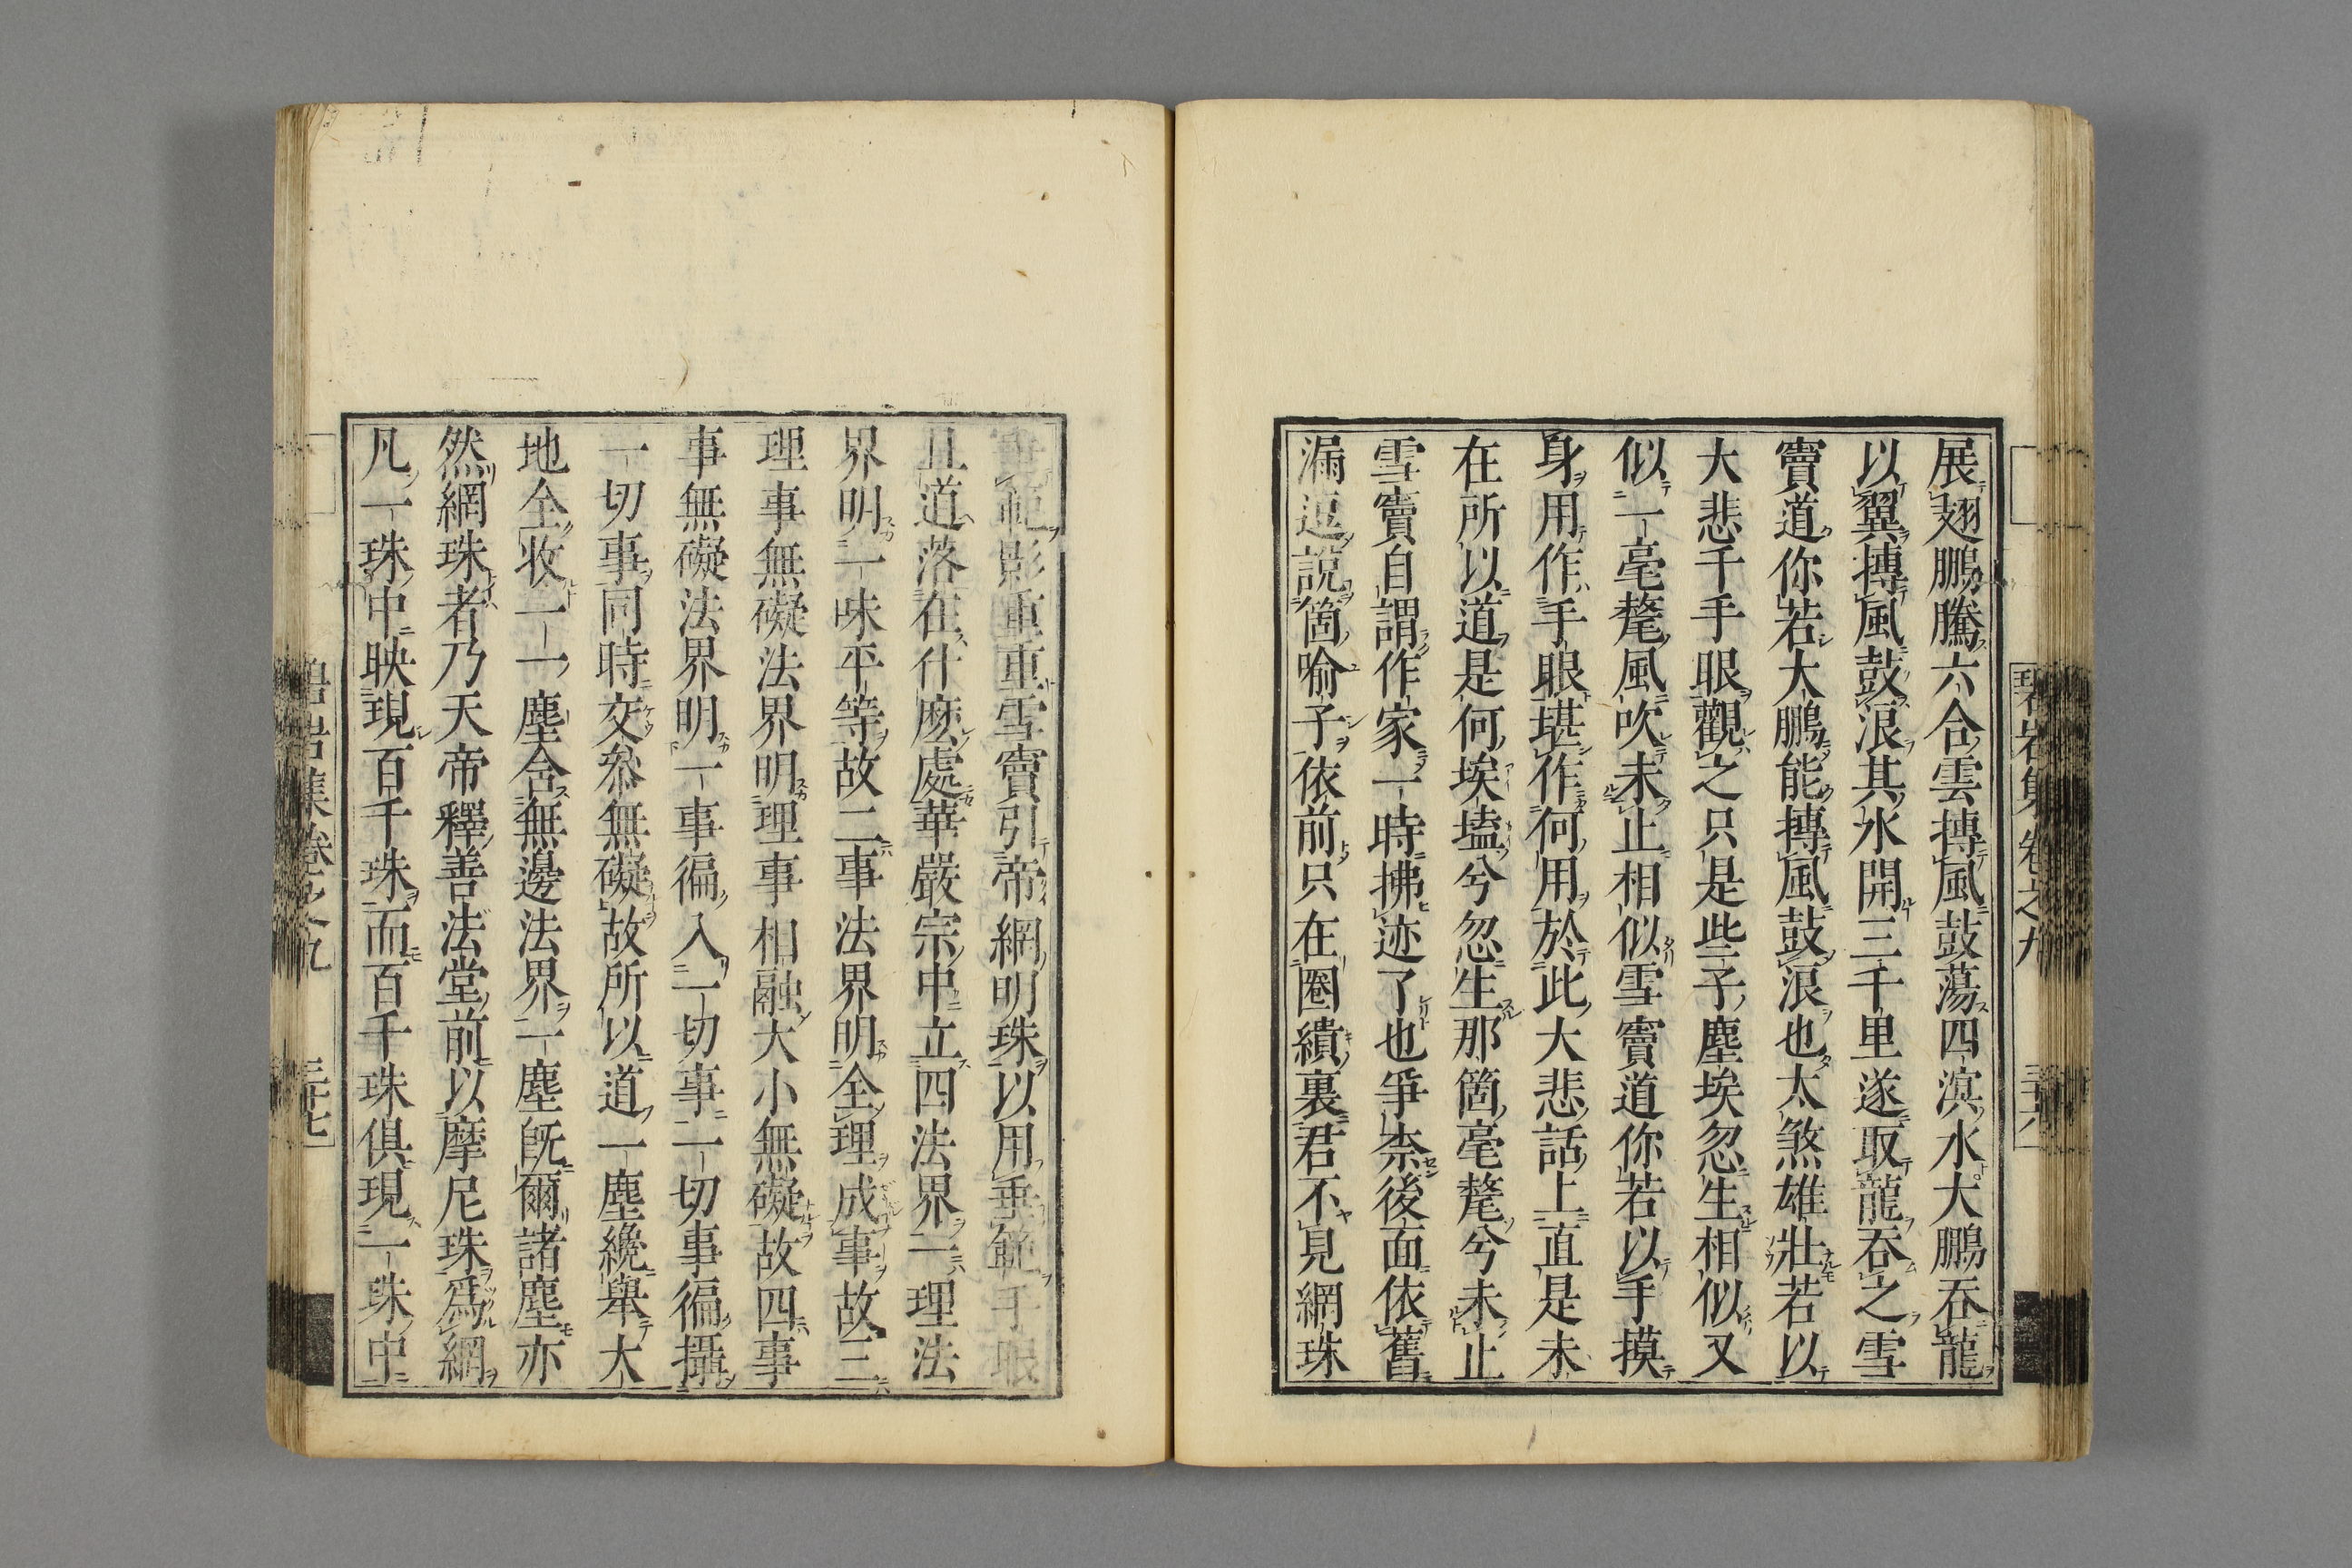 展翅鵬騰六合雲搏風鼓蕩四溟水大鵬吞龍
以翼搏風鼓浪其水開三千里遂取龍吞之雪
竇道你若大鵬能搏風鼓浪也太煞雄壯若以
大悲千手眼觀之只是些子塵埃忽生相似又
似一毫氂風吹未止相似雪竇道你若以手摸
身用作手眼堪作何用於此大悲話上直是未
在所以道是何埃壒兮忽生那箇毫氂兮未止
雪竇自謂作家一時拂迹了也爭柰後面依舊
漏逗說箇喻子依前只在圈繢裏君不見網珠
垂範影重重雪竇引帝網明珠以用垂範手眼
且道落在什麽處華嚴宗中立四法界一理法
界明一味平等故二事法界明全理成事故三
理事無礙法界明理事相融大小無礙故四事
事無礙法界明一事徧入一切事一切事徧攝
一切事同時交叅無礙故所以道一塵纔舉大
地全收一一塵含無邊法界一塵旣爾諸塵亦
然網珠者乃天帝釋善法堂前以摩尼珠爲網
凡一珠中映現百千珠而百千珠俱現一珠中
碧岩集卷之九